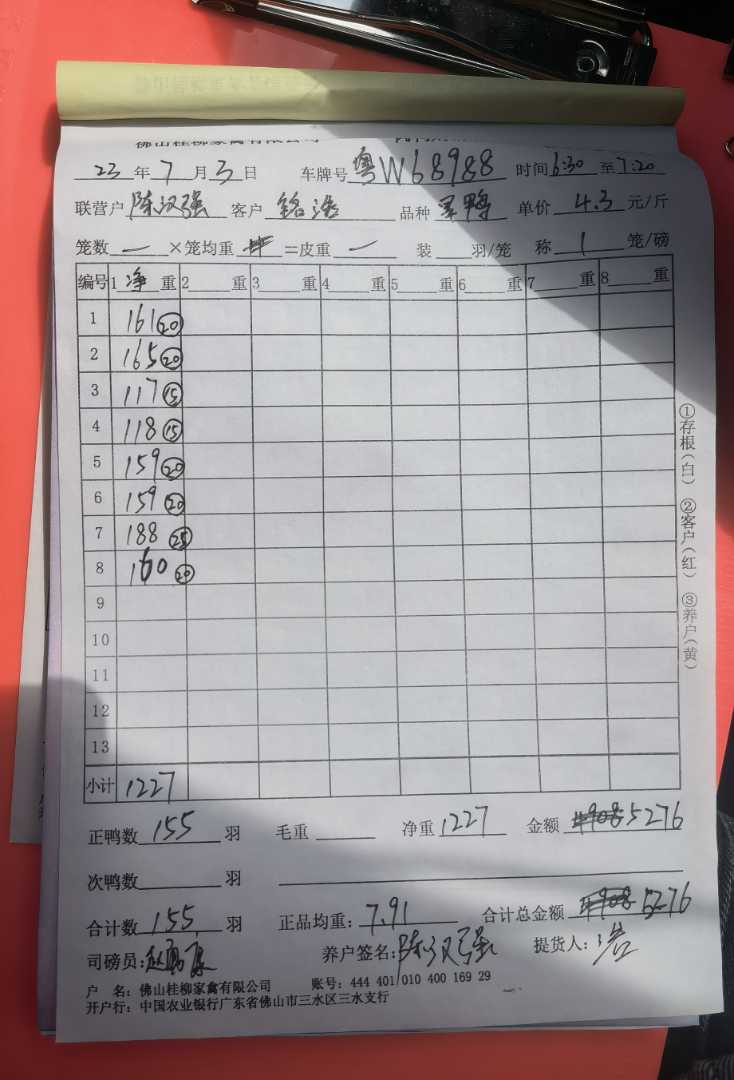 佛山桂柳家禽有限公司
23 年 7 月 3 日 车牌号 粤W68988 时间 6:30 至 7:20
联营户 陈汉强 客户 铭浩 品种 单价 4.3 元/斤
笼数 一 ×笼均重 =皮重 一 装 羽/笼 称 1 笼/磅
编号 1 净 重 2 重 3 重 4 重 5 重 6 重 7 重 8 重
1 161 ⑳
2 165 ⑳
3 117 ⑮
4 118 ⑮
5 159 ⑳
6 159 ⑳
7 188 ㉕
8 160 ⑳
9
10
11
12
13
小计 1227
正鸭数 155 羽 毛重 净重 1227 金额 5276
次鸭数 羽
合计数 155 羽 正品均重: 7.91 合计总金额 5276
司磅员: 养户签名: 陈汉强 提货人: 浩
户 名: 佛山桂柳家禽有限公司 账号: 444 401 010 400 169 29
开户行: 中国农业银行广东省佛山市三水区三水支行
①存根(白) ②客户(红) ③养户(黄)